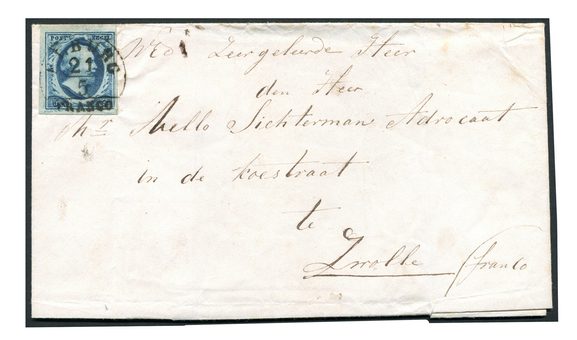 POSTZEGEL
21
5
FRANCO
Wed Zeergeleerde Heer
den Heer
Mr Mello Sichterman Advocaat
in de Koestraat
te
Zwolle (franco